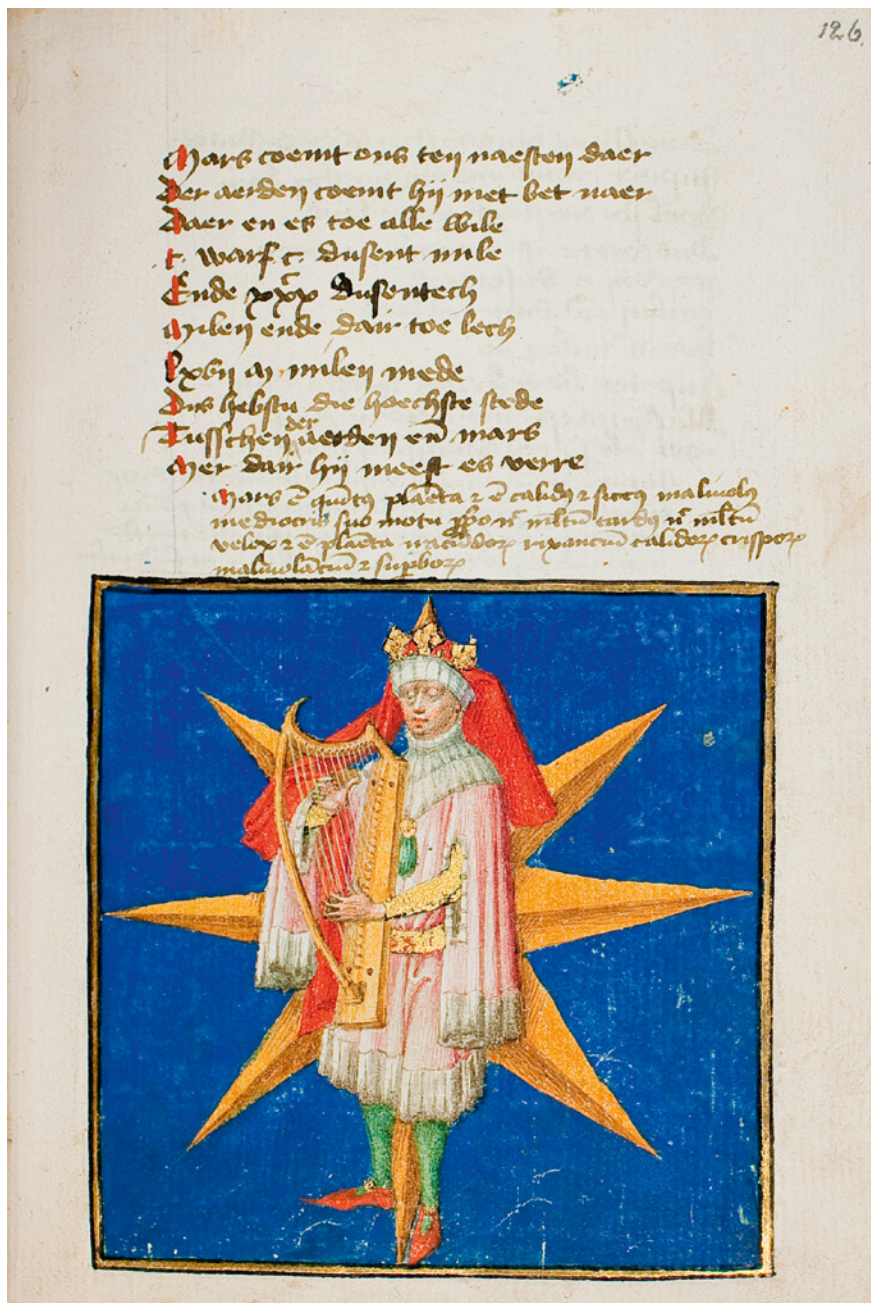 126.
Mars coemt ons ten naesten daer
Der aerden coemt hij niet bet naer
Daer en es toe alle wile
c. warf c. dusent mile
Ende xxx dusentech
Milen ende dair toe lech
Lxvij M. milen mede
Dus hebstu die hoechste stede
Tusschen der aerden eñ mars
Mer dair hij meest es verre
Mars ē quītus planēta ⁊ ē calidus ⁊ siccus malivolus
mediocris suo motu nō mltūm tardus nō mltūm
velox ⁊ ē planēta iracūdorꝝ rixanciū calidorꝝ crisporꝝ
malivolāciū ⁊ suꝑborꝝ